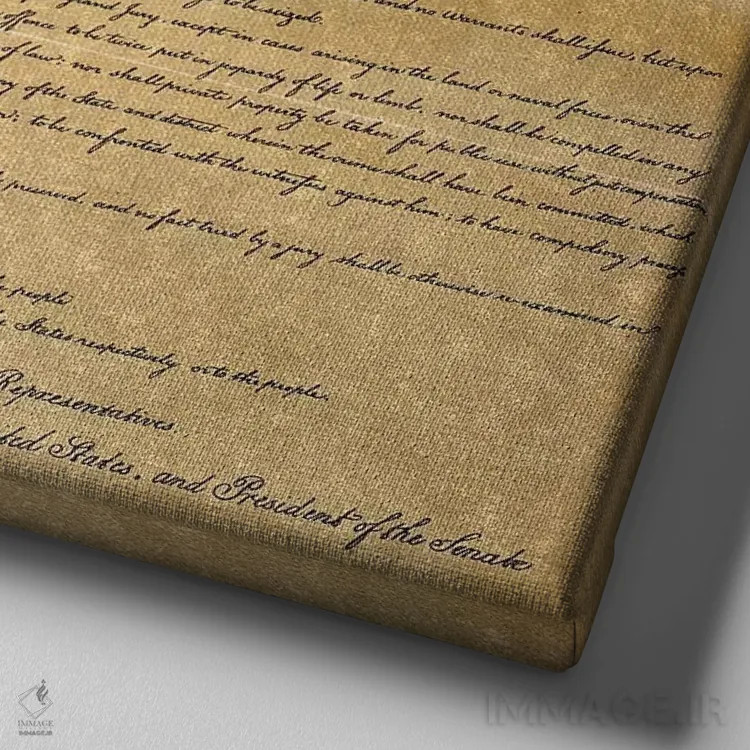 to be seized. and no warrants shall issue, but upon
grand jury, except in cases arising in the land or naval forces or in the
offence to be twice put in jeopardy of life or limb, nor shall be compelled in any
of law; nor shall private property be taken for public use, without just compensation
of the State and district wherein the crime shall have been committed, which
to be confronted with the witnesses against him; to have compulsory process
preserved, and no fact tried by a jury shall be otherwise re-examined in
people
States respectively or to the people.
Representatives.
ted States, and President of the Senate
IMMAGE
IMMAGE.IR
IMMAGE.IR